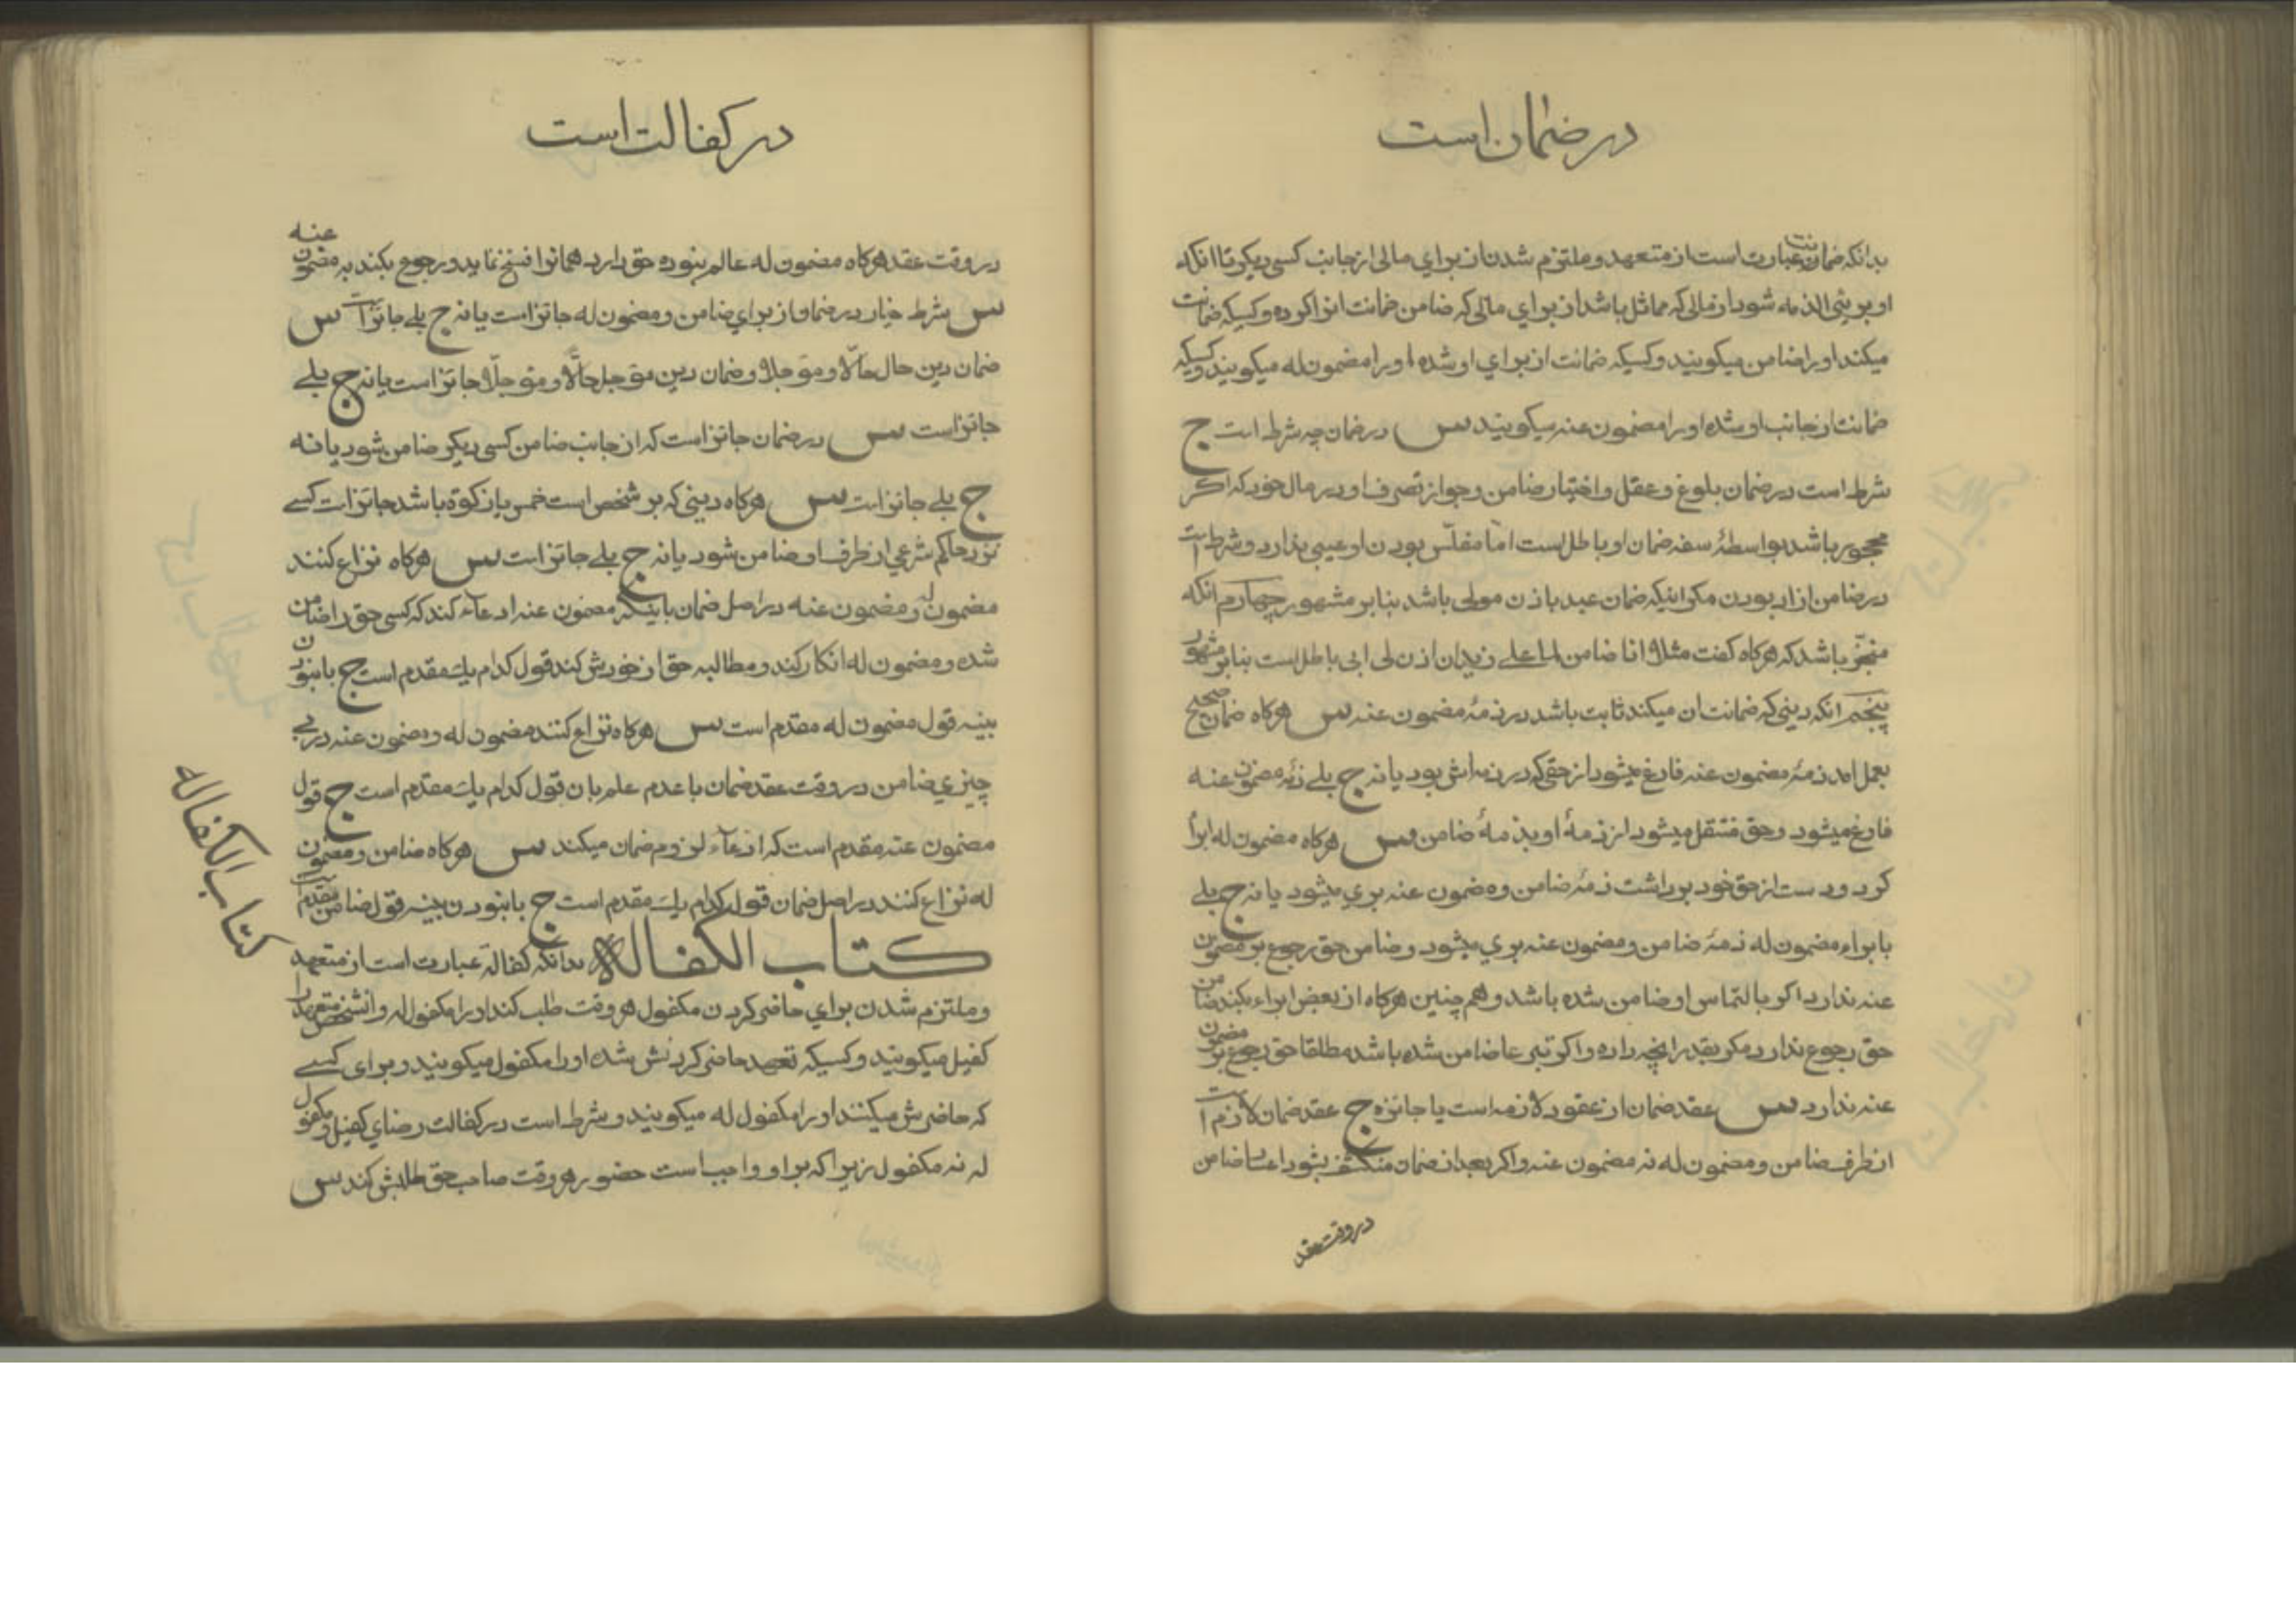 در ضمان است
بدانکه ضمانت عبارت است از متعهد و ملتزم شدن از برای مالی از جانب کسی دیکر تا انکه
او بریئ الذمه شود از مالی که مماثل باشد از برای مالی که ضامن ضمانت انرا کرده و کسیکه ضمانت
میکند او را ضامن میکویند و کسیکه ضمانت از برای او شده او را مضمون له میکویند و کسیکه
ضمانت از جانب او شده او را مضمون عنه میکویند س در ضمان چه شرط است ج
شرط است در ضمان بلوغ و عقل و اختیار ضامن و جواز تصرف او در مال خود که اکر
محجور باشد بواسطهٔ سفه ضمان او باطلست اما مفلّس بودن او عیبی ندارد و شرط است
در ضامن ازاد بودن مکر اینکه ضمان عبد باذن مولی باشد بنابر مشهور چهارم انکه
منجّز باشد که هرکاه کفت مثلا انا ضامن لما علی زید ان اذن لی ابی باطلست بنابر مشهور
پنجم انکه دینی که ضمانت ان میکند ثابت باشد در ذمهٔ مضمون عنه س هرکاه ضمان صحیح
بعمل امد ذمهٔ مضمون عنه فارغ میشود از حقی که در ذمه اش بود یا نه ج بلی ذمهٔ مضمون عنه
فارغ میشود و حق منتقل میشود از ذمهٔ او بذمهٔ ضامن س هرکاه مضمون له ابرأ
کرد و دست از حق خود برداشت ذمهٔ ضامن و مضمون عنه بری میشود یا نه ج بلی
با براء مضمون له ذمهٔ ضامن و مضمون عنه بری میشود و ضامن حق رجوع بر مضمون
عنه ندارد اکر بالتماس او ضامن شده باشد و هم چنین هرکاه از بعض ابراء بکند ضامن
حق رجوع ندارد مکر بقدر انچه داده و اکر تبرعا ضامن شده باشد مطلقا حق رجوع بر مضمون
عنه ندارد س عقد ضمان از عقود لازمه است یا جائزه ج عقد ضمان لازم است
از طرف ضامن و مضمون له نه مضمون عنه و اکر بعد از ضمان منکشف بشود اعسار ضامن
در وقت عقد
در کفالت است
در وقت عقد هرکاه مضمون له عالم نبوده حق دارد همانرا فسخ نماید و رجوع بکند به مضمون عنه
س شرط خیار در ضمان از برای ضامن و مضمون له جائز است یا نه ج بلی جائز است س
ضمان دین حال حالّا و مؤجلا و ضمان دین مؤجل حالّا و مؤجلّا جائز است یا نه ج بلی
جائز است س در ضمان جائز است که از جانب ضامن کسی دیکر ضامن شود یا نه
ج بلی جائز است س هرکاه دینی که بر شخص است خمس یا زکوة باشد جائز است کسی
نزد حاکم شرعی از طرف او ضامن شود یا نه ج بلی جائز است س هرکاه نزاع کنند
مضمون له و مضمون عنه در اصل ضمان باینکه مضمون عنه ادعاء کند که کسی حق را ضامن
شده و مضمون له انکار کند و مطالبه حق از خودش کند قول کدام یك مقدم است ج با نبودن
بینه قول مضمون له مقدم است س هرکاه نزاع کنند مضمون له و مضمون عنه در بی
چیزی ضامن در وقت عقد ضمان با عدم علم بان قول کدام یك مقدم است ج قول
مضمون عنه مقدم است که ادعاء لزوم ضمان میکند س هرکاه ضامن و مضمون
له نزاع کنند در اصل ضمان قول کدام یك مقدم است ج با نبودن بینه قول ضامن مقدم است
کتاب الکفاله بدانکه کفالة عبارت است از متعهد
و ملتزم شدن برای حاضر کردن مکفول هر وقت طلب کند او را مکفول له و انشخص متعهد را
کفیل میکویند و کسیکه تعهد حاضر کردنش شده او را مکفول میکویند و برای کسی
که حاضرش میکنند او را مکفول له میکویند و شرط است در کفالت رضای کفیل و مکفول
له نه مکفول زیرا که بر او واجب است حضور هر وقت صاحب حق طلبش کند س
کتاب الکفاله